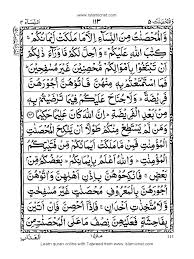 www.islamicnet.com
النساء ٤ ١١٣ ٥
وَّالْمُحْصَنٰتُ مِنَ النِّسَآءِ اِلَّا مَا مَلَكَتْ اَيْمَانُكُمْ
كِتٰبَ اللّٰهِ عَلَيْكُمْ وَاُحِلَّ لَكُمْ مَّا وَرَآءَ ذٰلِكُمْ
اَنْ تَبْتَغُوْا بِاَمْوَالِكُمْ مُّحْصِنِيْنَ غَيْرَ مُسٰفِحِيْنَ
فَمَا اسْتَمْتَعْتُمْ بِهٖ مِنْهُنَّ فَاٰتُوْهُنَّ اُجُوْرَهُنَّ
فَرِيْضَةً وَلَا جُنَاحَ عَلَيْكُمْ فِيْمَا تَرٰضَيْتُمْ بِهٖ
مِنْۢ بَعْدِ الْفَرِيْضَةِ اِنَّ اللّٰهَ كَانَ عَلِيْمًا حَكِيْمًا
وَمَنْ لَّمْ يَسْتَطِعْ مِنْكُمْ طَوْلًا اَنْ يَّنْكِحَ الْمُحْصَنٰتِ
الْمُؤْمِنٰتِ فَمِنْ مَّا مَلَكَتْ اَيْمَانُكُمْ مِّنْ فَتَيٰتِكُمُ
الْمُؤْمِنٰتِ وَاللّٰهُ اَعْلَمُ بِاِيْمَانِكُمْ بَعْضُكُمْ مِّنْۢ
بَعْضٍ فَانْكِحُوْهُنَّ بِاِذْنِ اَهْلِهِنَّ وَاٰتُوْهُنَّ
اُجُوْرَهُنَّ بِالْمَعْرُوْفِ مُحْصَنٰتٍ غَيْرَ مُسٰفِحٰتٍ
وَّلَا مُتَّخِذٰتِ اَخْدَانٍ فَاِذَآ اُحْصِنَّ فَاِنْ اَتَيْنَ
بِفَاحِشَةٍ فَعَلَيْهِنَّ نِصْفُ مَا عَلَى الْمُحْصَنٰتِ مِنَ
الْعَذَابِ
Learn quran online with Tajweed from www.islamicnet.com